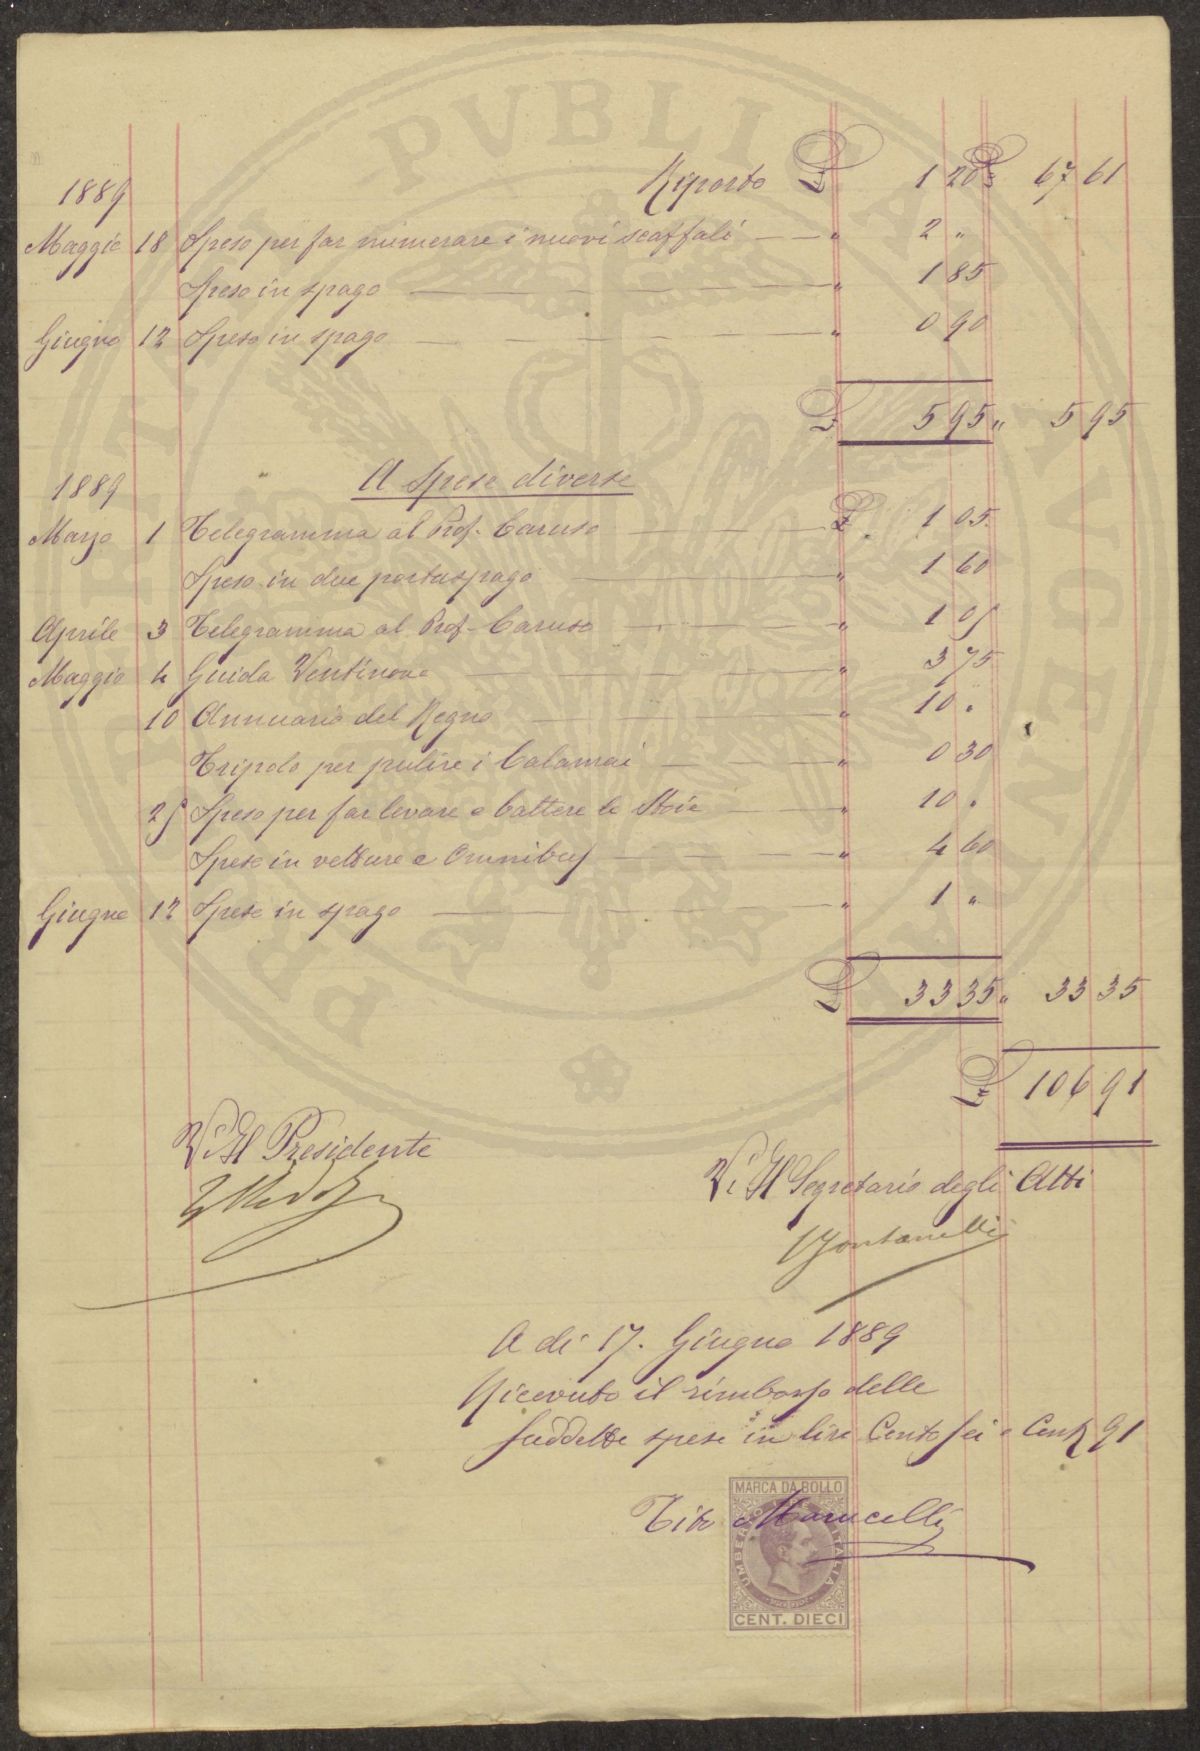 Riporto £ 1 20 £ 67 61
1889
Maggio 18 Speso per far numerare i nuovi scaffali " 2 "
Speso in spago " 1 85
Giugno 12 Speso in spago " 0 90
£ 5 95 " 5 95
1889 A Spese diverse
Marzo 1 Telegramma al Prof. Caruso £ 1 05
Speso in due portaspago " 1 60
Aprile 3 Telegramma al Prof. Caruso " 1 05
Maggio 4 Guida Ventinove " 3 75
10 Annuario del Regno " 10 "
Tripolo per pulire i Calamai " 0 30
25 Speso per far levare e battere le Stoie " 10 "
Spese in vetture e Omnibus " 4 60
Giugno 12 Spese in spago " 1 "
£ 33 35 " 33 35
£ 106 91
V. Il Presidente
V. Il Segretario degli Atti
Fontanelli
A di 17. Giugno 1889
Ricevuto il rimborso delle
suddette spese in lire Cento sei e Cent 91
MARCA DA BOLLO
Tito Marucelli
UMBERTO I RE D'ITALIA
CENT. DIECI